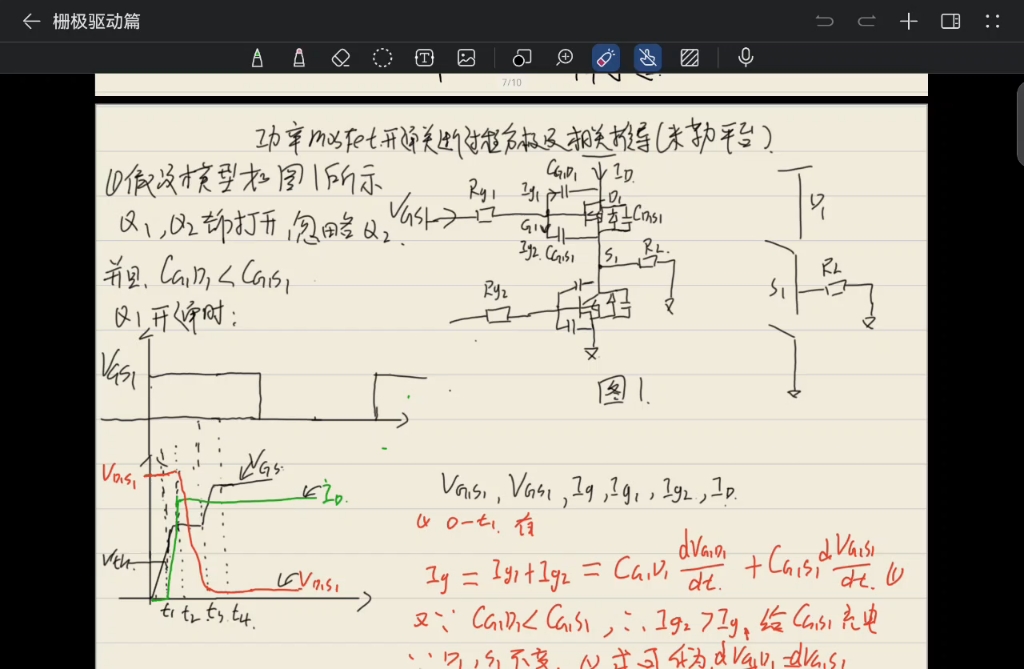 栅极驱动篇
7/10
功率mosfet开通关断过程分析及相关推导(米勒平台)
①假设模型如图1所示
Q1,Q2都打开,忽略Q2.
并且 CG1D1<CG1S1
Q1开通时:
CG1D1
ID
Rg1
Ig1
D1
VGS1
G1
CD1S1
Ig2
CG1S1
S1
RL
Rg2
图1.
D1
S1
RL
VGS1
VD1S1
VGS
ID
Vth
VD1S1
t1 t2 t3 t4.
VG1S1, VGS1, Ig, Ig1, Ig2, ID.
① 0-t1. 有
Ig = Ig1+Ig2 = CG1D1 dVG1D1/dt. + CG1S1 dVG1S1/dt. ①
又∵ CG1D1<CG1S1, ∴ Ig2>Ig1 给CG1S1充电
∵ D1,S1不变, ①式可化为 dVG1D1=dVG1S1